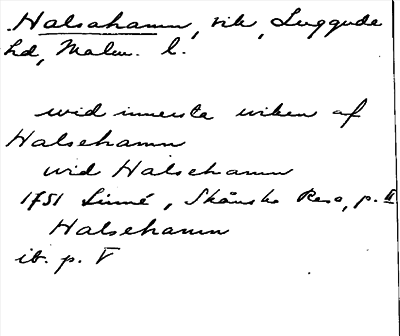 Halsahamn, vik, Luggude
hd, Malm. l.
wid innersta wiken af
Halsehamn
wid Halsehamn
1751 Linné, Skånska Resa, p. II
Halsehamn
ib. p. V